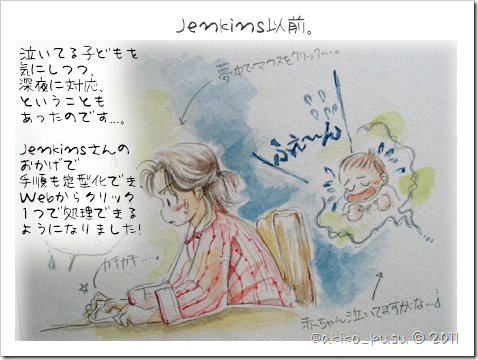 Jenkins以前。
泣いてる子どもを
気にしつつ、
深夜に対応、
ということも
あったのです…。
Jenkinsさんの
おかげで
手順も定型化でき、
Webからクリック
1つで処理できる
ようになりました!
夢中でマウスをクリック…。
ふえ〜ん
カチカチ…。
赤ちゃん泣いてますがな…
@akiko_pusu © 2011